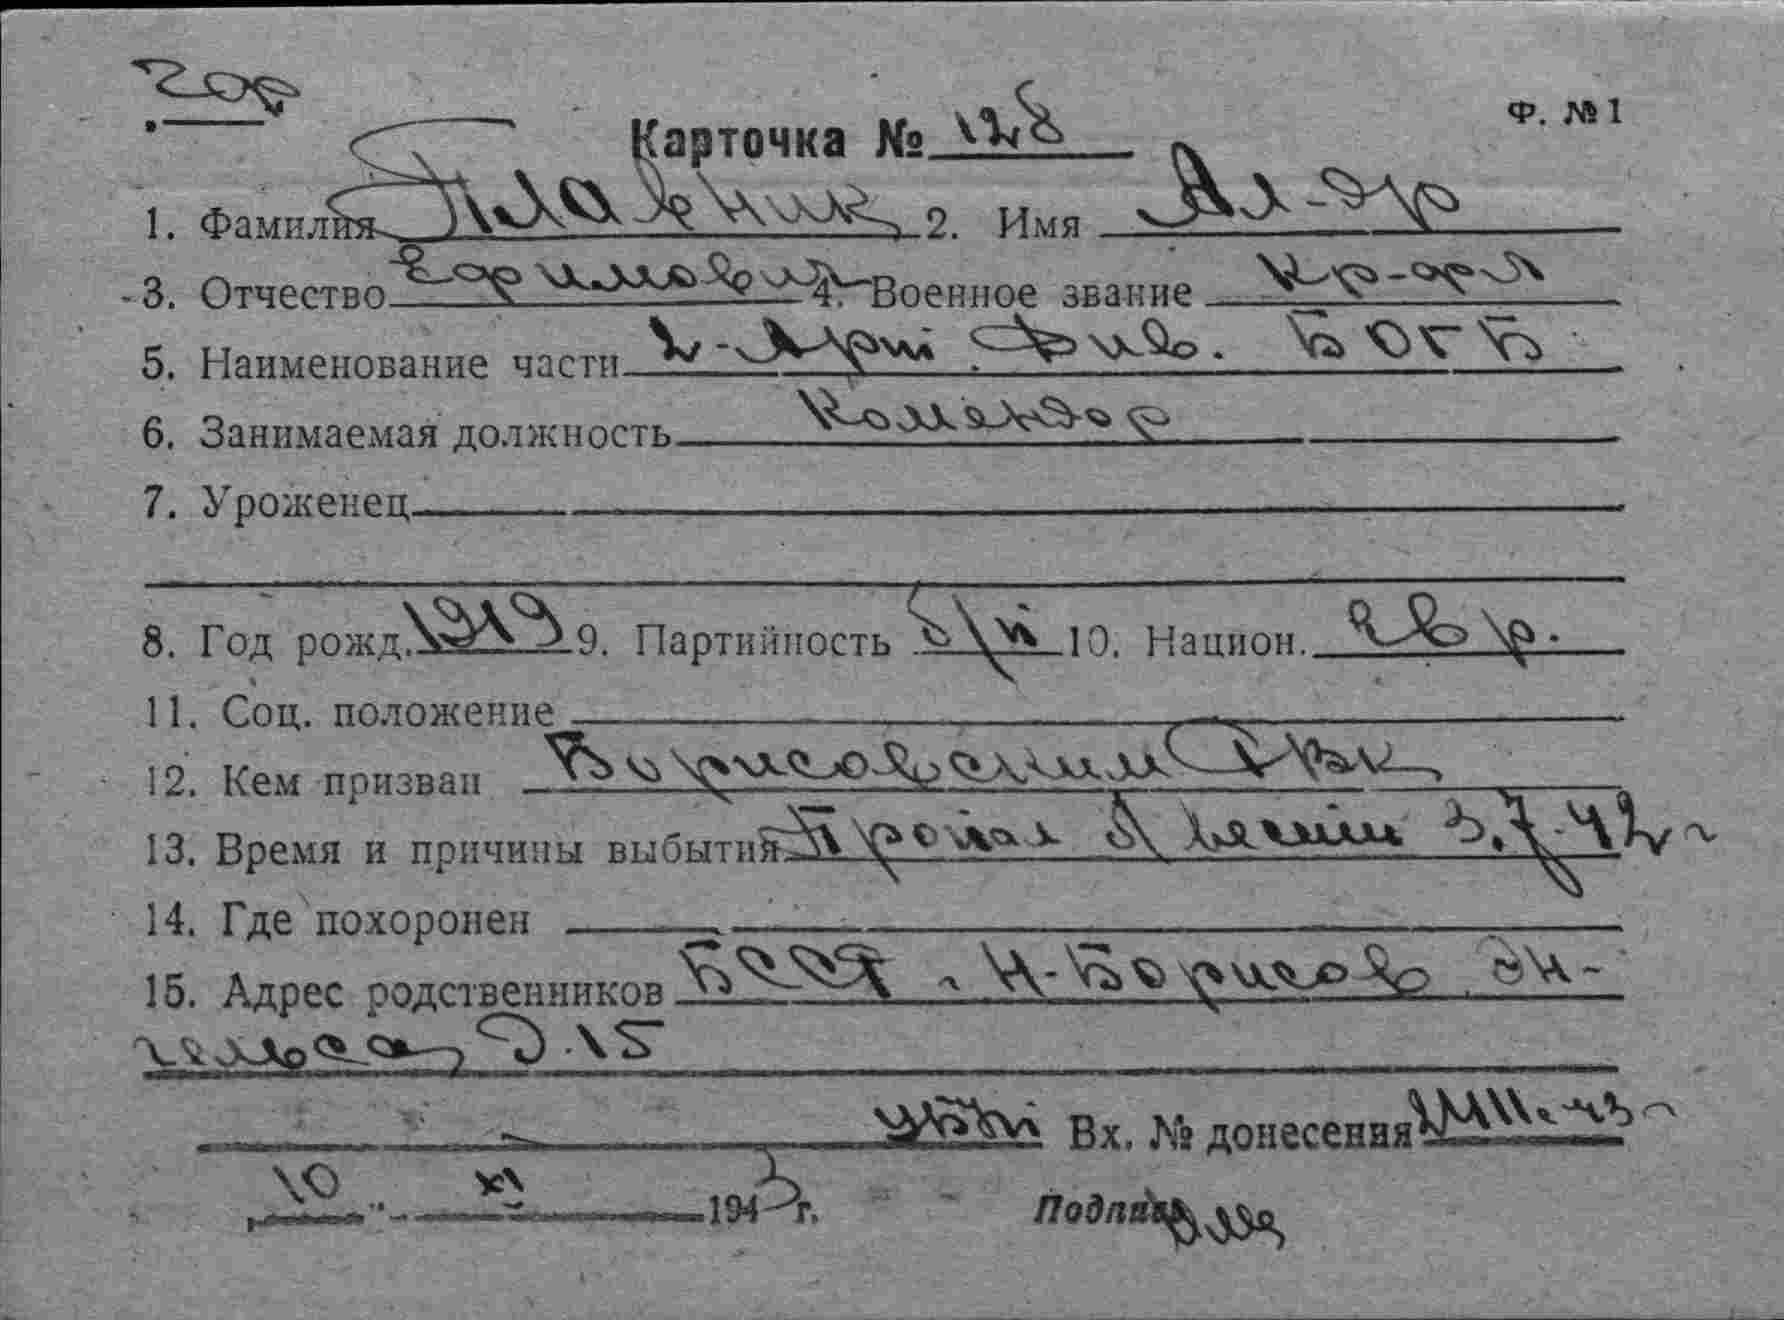 Ф. №1
Карточка № 128
1. Фамилия Плавник 2. Имя Ал-др
3. Отчество Ефимович 4. Военное звание кр-фл
5. Наименование части 2-Арт. Див. БОГБ
6. Занимаемая должность Комендор
7. Уроженец
8. Год рожд. 1919 9. Партийность б/п 10. Национ. евр.
11. Соц. положение
12. Кем призван Борисовским РВК
13. Время и причины выбытия Пропал б/вести 3.7.42 г
14. Где похоронен
15. Адрес родственников БССР, Н-Борисов Эн-
гельса, Д. 15
Вх. № донесения
10 " XI 1943 г. Подпись